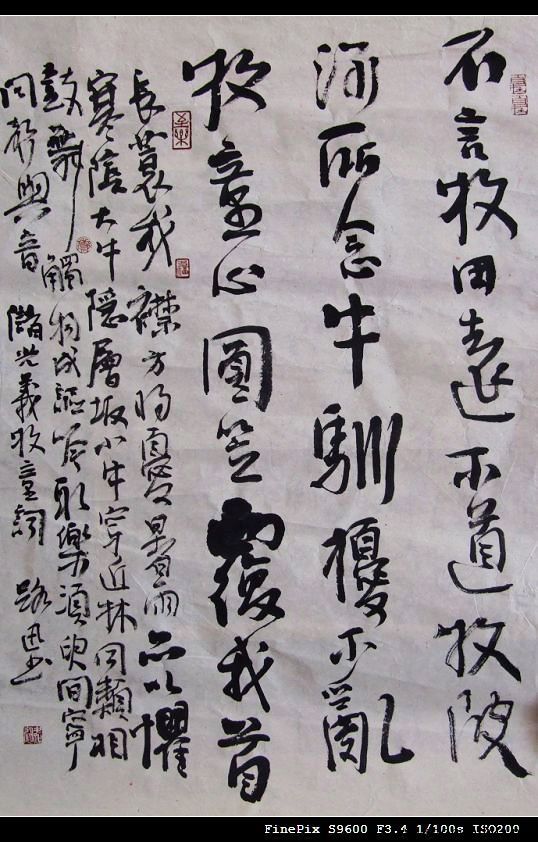 不言牧田遠不道牧陂
深所念牛馴擾不亂
牧童心圓笠覆我首
長蓑我襟方将憂暑雨亦以懼
寒陰大牛隱層坂小牛穿近林同類相
鼓舞觸物成謳吟取樂須臾間寧
问聲與音 儲光羲牧童詞 路迅书
FinePix S9600 F3.4 1/100s ISO200